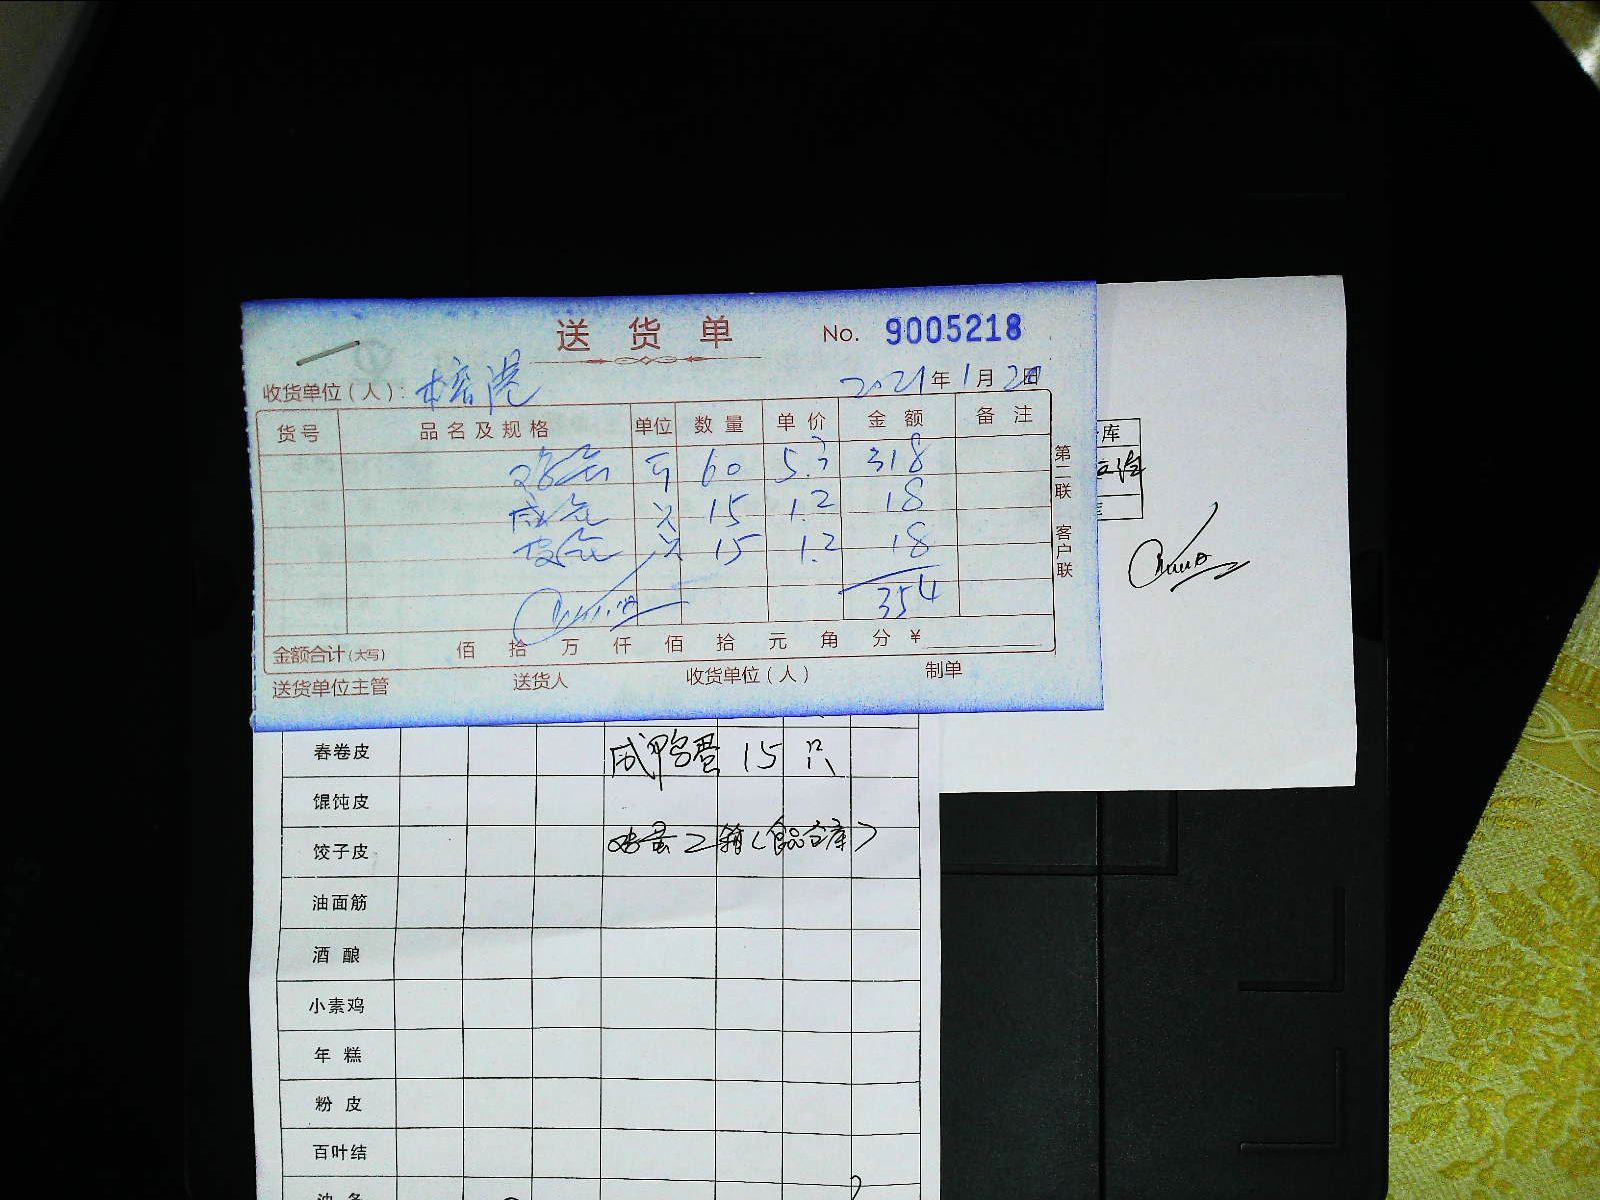 送货单 No. 9005218
收货单位(人): 榕港 2021年1月20日
货号 品名及规格 单位 数量 单价 金额 备注
鸡蛋 斤 60 5.3 318
咸蛋 只 15 1.2 18
皮蛋 只 15 1.2 18
354
金额合计(大写) 佰 拾 万 仟 佰 拾 元 角 分 ¥
送货单位主管 送货人 收货单位(人) 制单
第二联 客户联
库
春卷皮 咸鸭蛋 15 只
馄饨皮
饺子皮 鸡蛋2箱(食品仓库)
油面筋
酒酿
小素鸡
年糕
粉皮
百叶结
油条